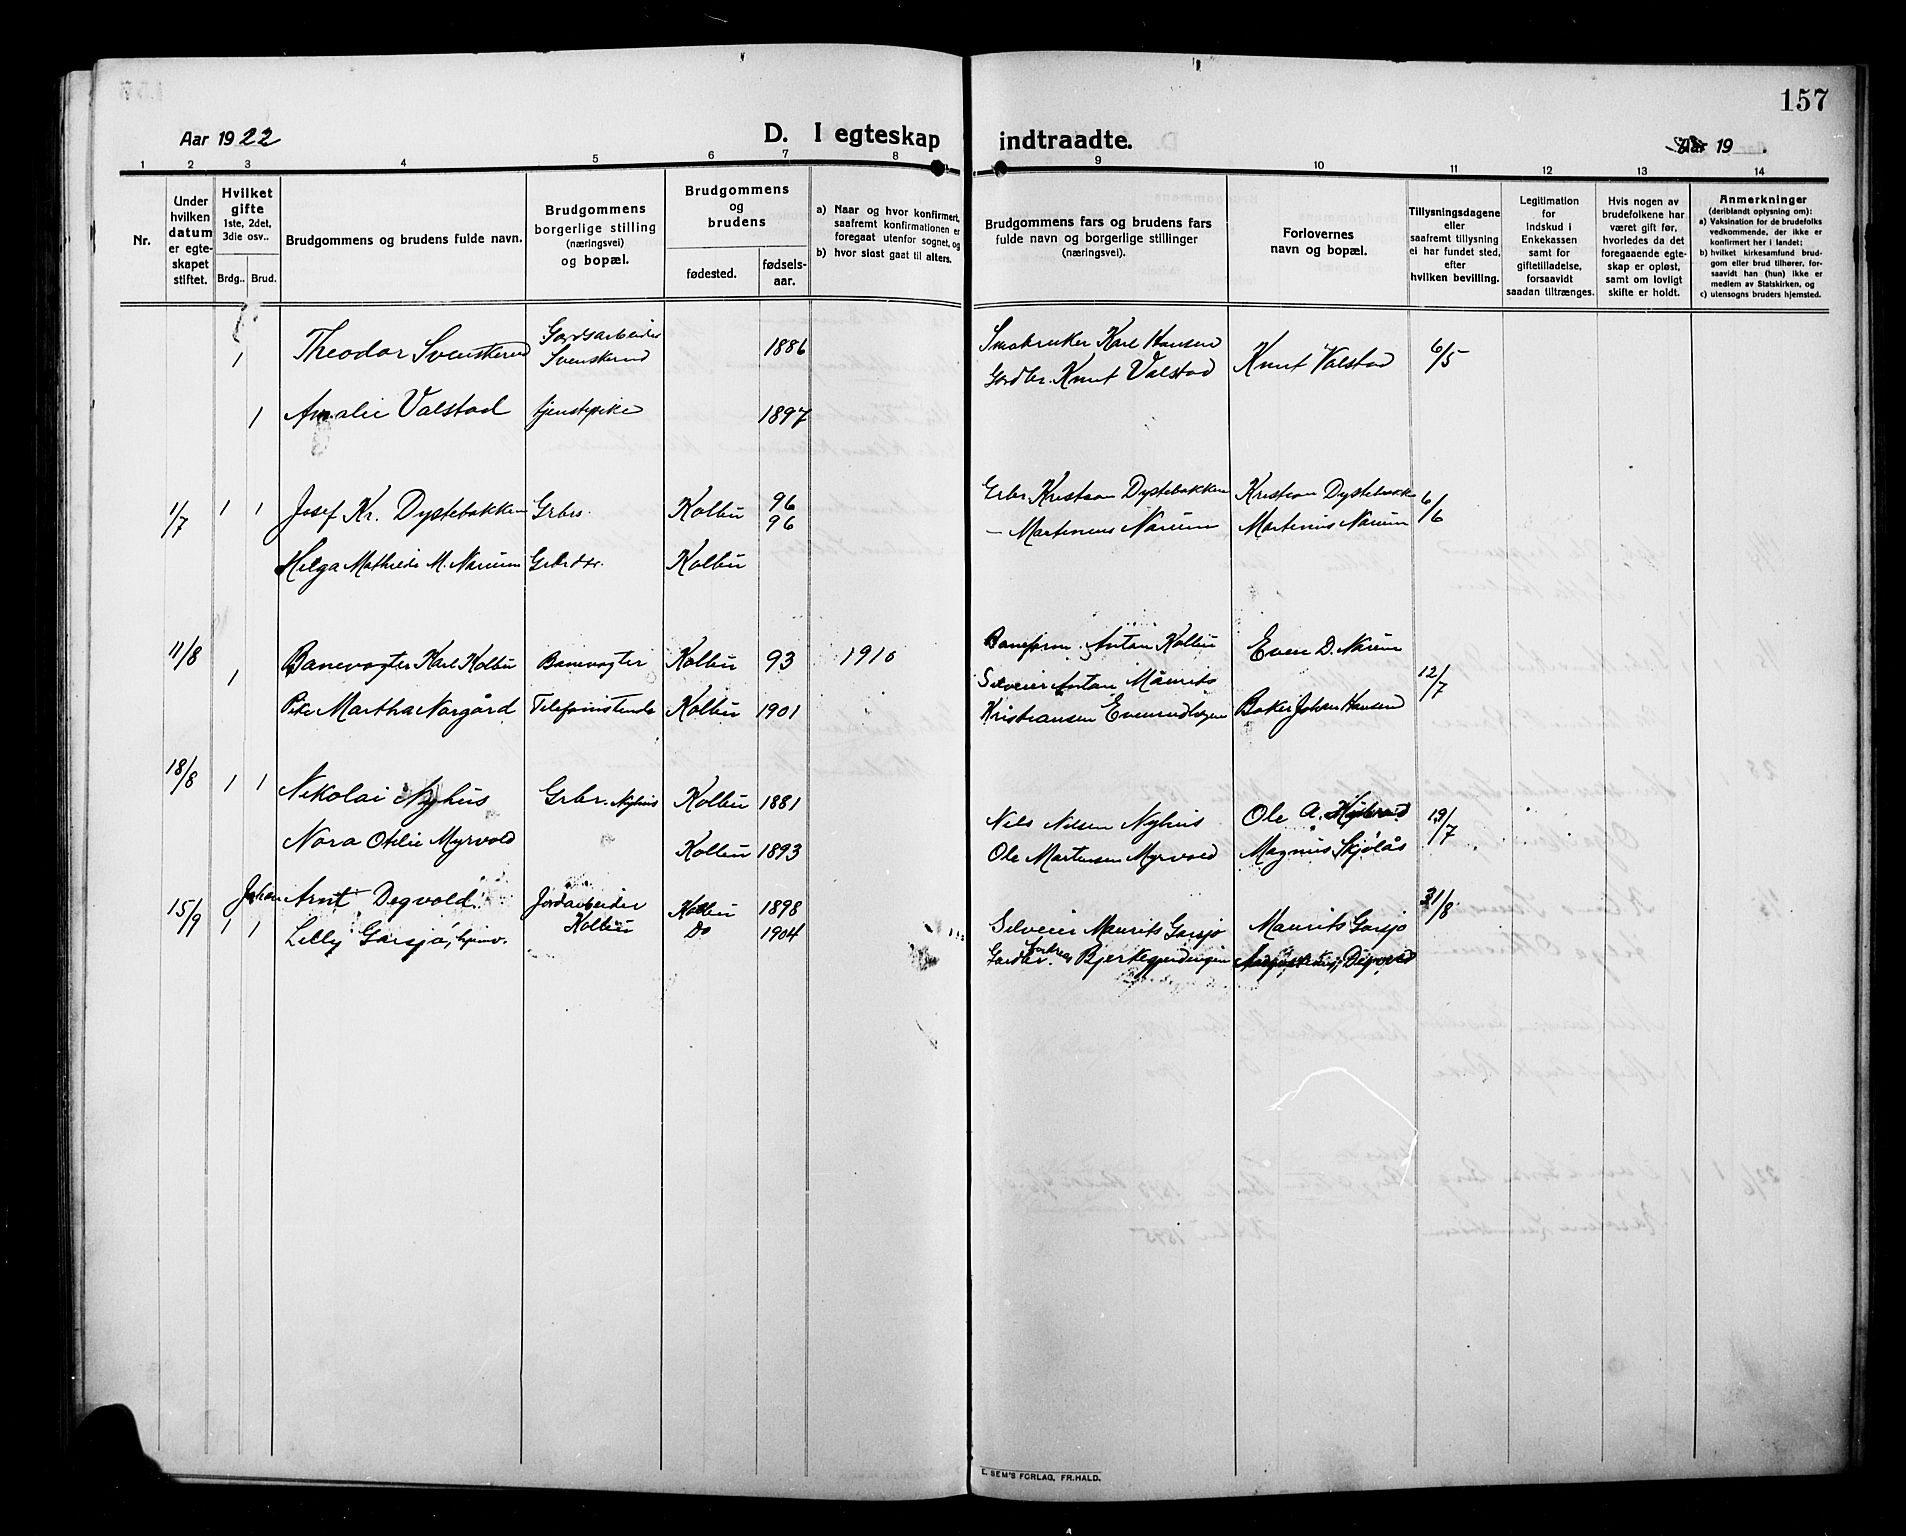 157
Aar 1922
D. I egteskap indtraadte.
Aar 19 .
1 2 3 4 5 6 7 8 9 10 11 12 13 14
Nr.
Under hvilken datum er egteskapet stiftet.
Hvilket gifte 1ste, 2det, 3die osv..
Brdg.. Brud.
Brudgommens og brudens fulde navn.
Brudgommens borgerlige stilling (næringsvei) og bopæl.
Brudgommens og brudens
fødested. fødselsaar.
a) Naar og hvor konfirmert, saafremt konfirmationen er foregaat utenfor sognet, og
b) hvor sidst gaat til alters.
Brudgommens fars og brudens fars fulde navn og borgerlige stillinger (næringsvei).
Forlovernes navn og bopæl.
Tillysningsdagene eller saafremt tillysning ei har fundet sted, efter hvilken bevilling.
Legitimation for Indskud i Enkekassen samt for giftetilladelse, forsaavidt saadan tiltrænges.
Hvis nogen av brudefolkene har været gift før, hvorledes da det foregaaende egteskap er opløst, samt om lovligt skifte er holdt.
Anmerkninger (deriblandt oplysning om):
a) Vaksination for de brudefolks vedkommende, der ikke er konfirmert her i landet;
b) hvilket kirkesamfund brudgom eller brud tilhører, forsaavidt han (hun) ikke er medlem av Statskirken, og
c) utensogns bruders hjemsted.
1 Theodor Svenskerud Gardsarbeider Svenskerud 1886 Smabruker Karl Hansen Knut Valstad 6/5
Gardbr. Knut Valstad
1 Amalie Valstad tjenestepike 1897
1/7 1 1 Josef Kr. Dystebakken Grbrs. Kolbu 96 Grbr Kristian Dystebakken Kristian Dystebakk 6/6
96 — Martinius Narum Martinius Narum
Helga Mathilde M. Narum Grbrdtr. Kolbu
11/8 1 Banevogter Karl Kolbu Banevogter Kolbu 93 1910 Baneform. Anton Kolbu Even D. Narum 12/7
Pike Martha Norgård Telefonistinde Kolbu 1901 Selveier Anton Maurits Kristiansen Baker Johan Hansen
18/8 1 1 Nikolai Nyhus Grbr. Nyhus Kolbu 1881 Nils Nilsen Nyhus Ole A. 19/7
Nora Otilie Myrvold Kolbu 1893 Ole Martinsen Myrvold Magnus Skjølås
15/9 1 1 Johan Arnt Degvold Jordarbeider Kolbu Kolbu 1898 Selveier Maurits Garsjø Maurits Garsjø 31/8
Lilly Garsjø, Do 1904 Gardbr. Bjerkegjerdingen Degvold
E. SEM'S FORLAG, FR.HALD.